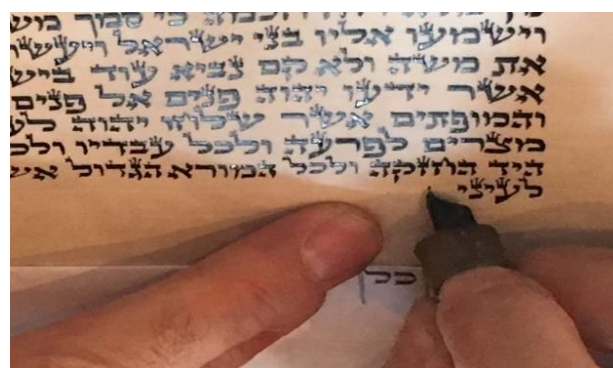 כי סמך
וישמעו אליו בני ישראל ויעשו
את משה ולא קם נביא עוד
אשר ידעו יהוה פנים אל פנים
והמופתים אשר שלחו יהוה
מצרים לפרעה ולכל עבדיו
היד החזקה ולכל המורא הגדול
לעיני
כל